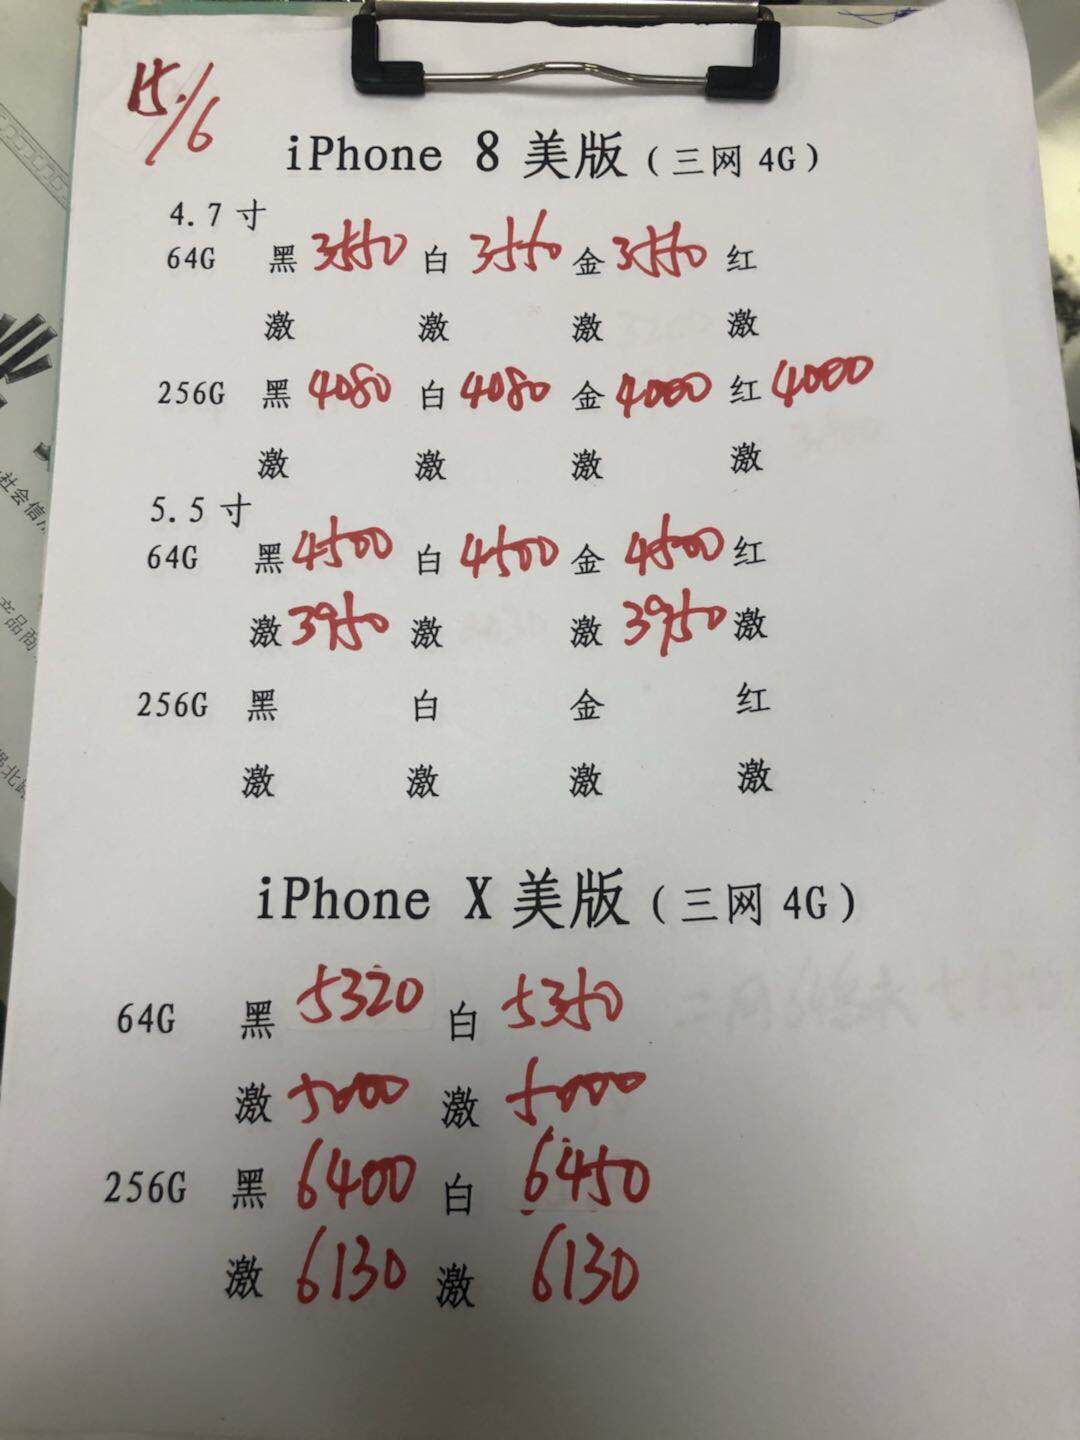 15/6
iPhone 8 美版（三网 4G）
4.7 寸
64G 黑 3550 白 3550 金 3550 红
激 激 激 激
256G 黑 4080 白 4080 金 4000 红 4000
激 激 激 激
5.5 寸
64G 黑 4500 白 4500 金 4500 红
激 3950 激 激 3950 激
256G 黑 白 金 红
激 激 激 激
iPhone X 美版（三网 4G）
64G 黑 5320 白 5350
激 5000 激 5000
256G 黑 6400 白 6450
激 6130 激 6130
社会信
产品商